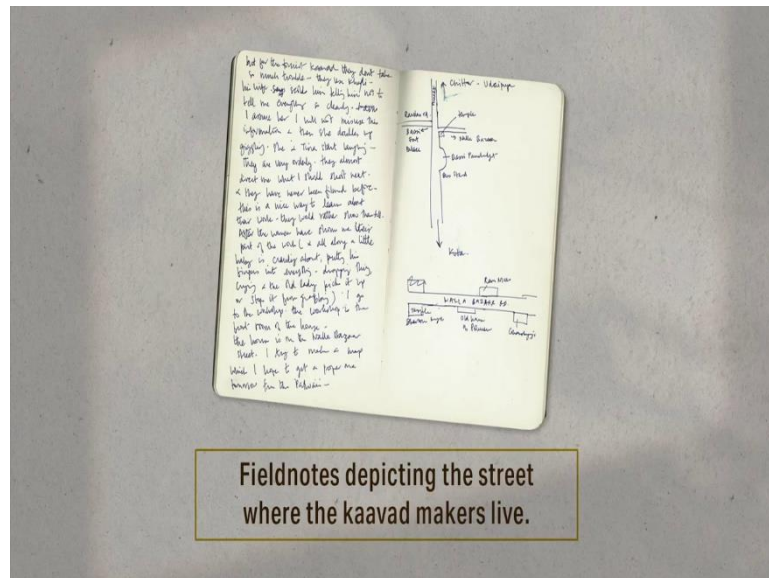 but for the tourist Kaavad they dont take
so much trouble - they use
his wife scolds him telling him not to
tell me everything so clearly.
I assure her I will not misuse this
information & then she doubles up
giggling. She & Tina start laughing -
They are very orderly. they almost
direct me what I should shoot next.
& they have never been filmed before -
this is a nice way to learn about
their work - they would rather show than tell.
After the women have shown me their
part of the work (& all along a little
baby is crawling about, putting his
fingers into everything - dropping things
crying & the old lady picks it up
or stops it from
I go
to the workshop. the workshop is the
first room of the house -
the house is on the Walla Bazaar
street. I try to make a map
which I hope to get a proper one
tomorrow from the Patwari -
Chittor - Udaipur
Temple
Bassi
Fort
Palace
Bassi Panchayat
Bus Stand
Kota
Ram
WALLA BAZAAR RD
Temple
Fieldnotes depicting the street
where the kaavad makers live.